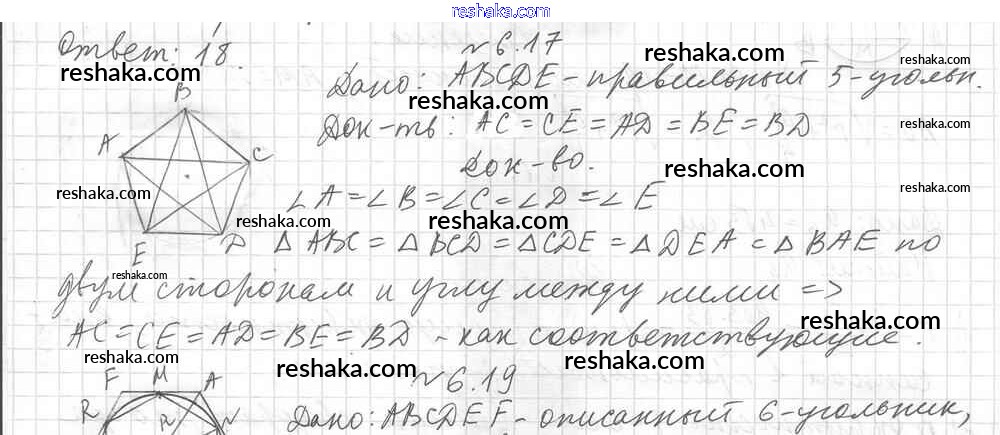 reshaka.com
Ответ: 18.
№ 6.17
reshaka.com
reshaka.com
Дано: ABCDE - правильный 5-угольн.
reshaka.com
reshaka.com
B
Док-ть: AC = CE = AD = BE = BD
reshaka.com
A
C
Док-во.
reshaka.com
reshaka.com
reshaka.com
∠A = ∠B = ∠C = ∠D = ∠E
reshaka.com
reshaka.com
E
D
Δ ABC = Δ BCD = Δ CDE = Δ DEA = Δ BAE по
reshaka.com
двум сторонам и углу между ними =>
reshaka.com
AC = CE = AD = BE = BD - как соответствующие.
reshaka.com
reshaka.com
reshaka.com
№ 6.19
F
M
A
R
N
Дано: ABCDEF - описанный 6-угольник,
reshaka.com
reshaka.com